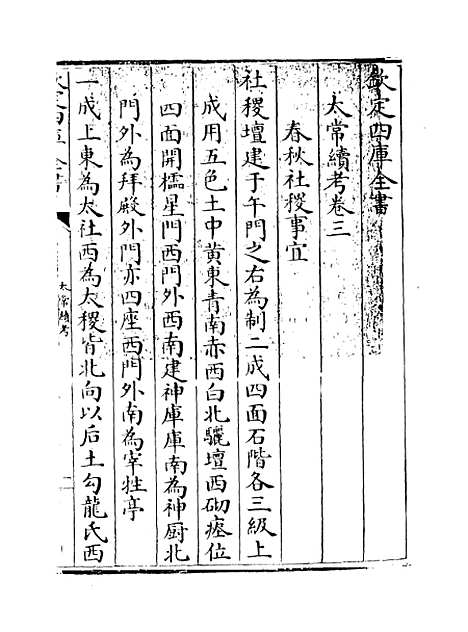 欽定四庫全書
太常續考卷三
春秋社稷事宜
社稷壇建于午門之右為制二成四面石階各三級上
成用五色土中黃東青南赤西白北驪壇西砌瘞位
四面開櫺星門西門外西南建神庫庫南為神厨北
門外為拜殿外門亦四座西門外南為宰牲亭
一成上東為太社西為太稷皆北向以后土勾龍氏西
太常續考